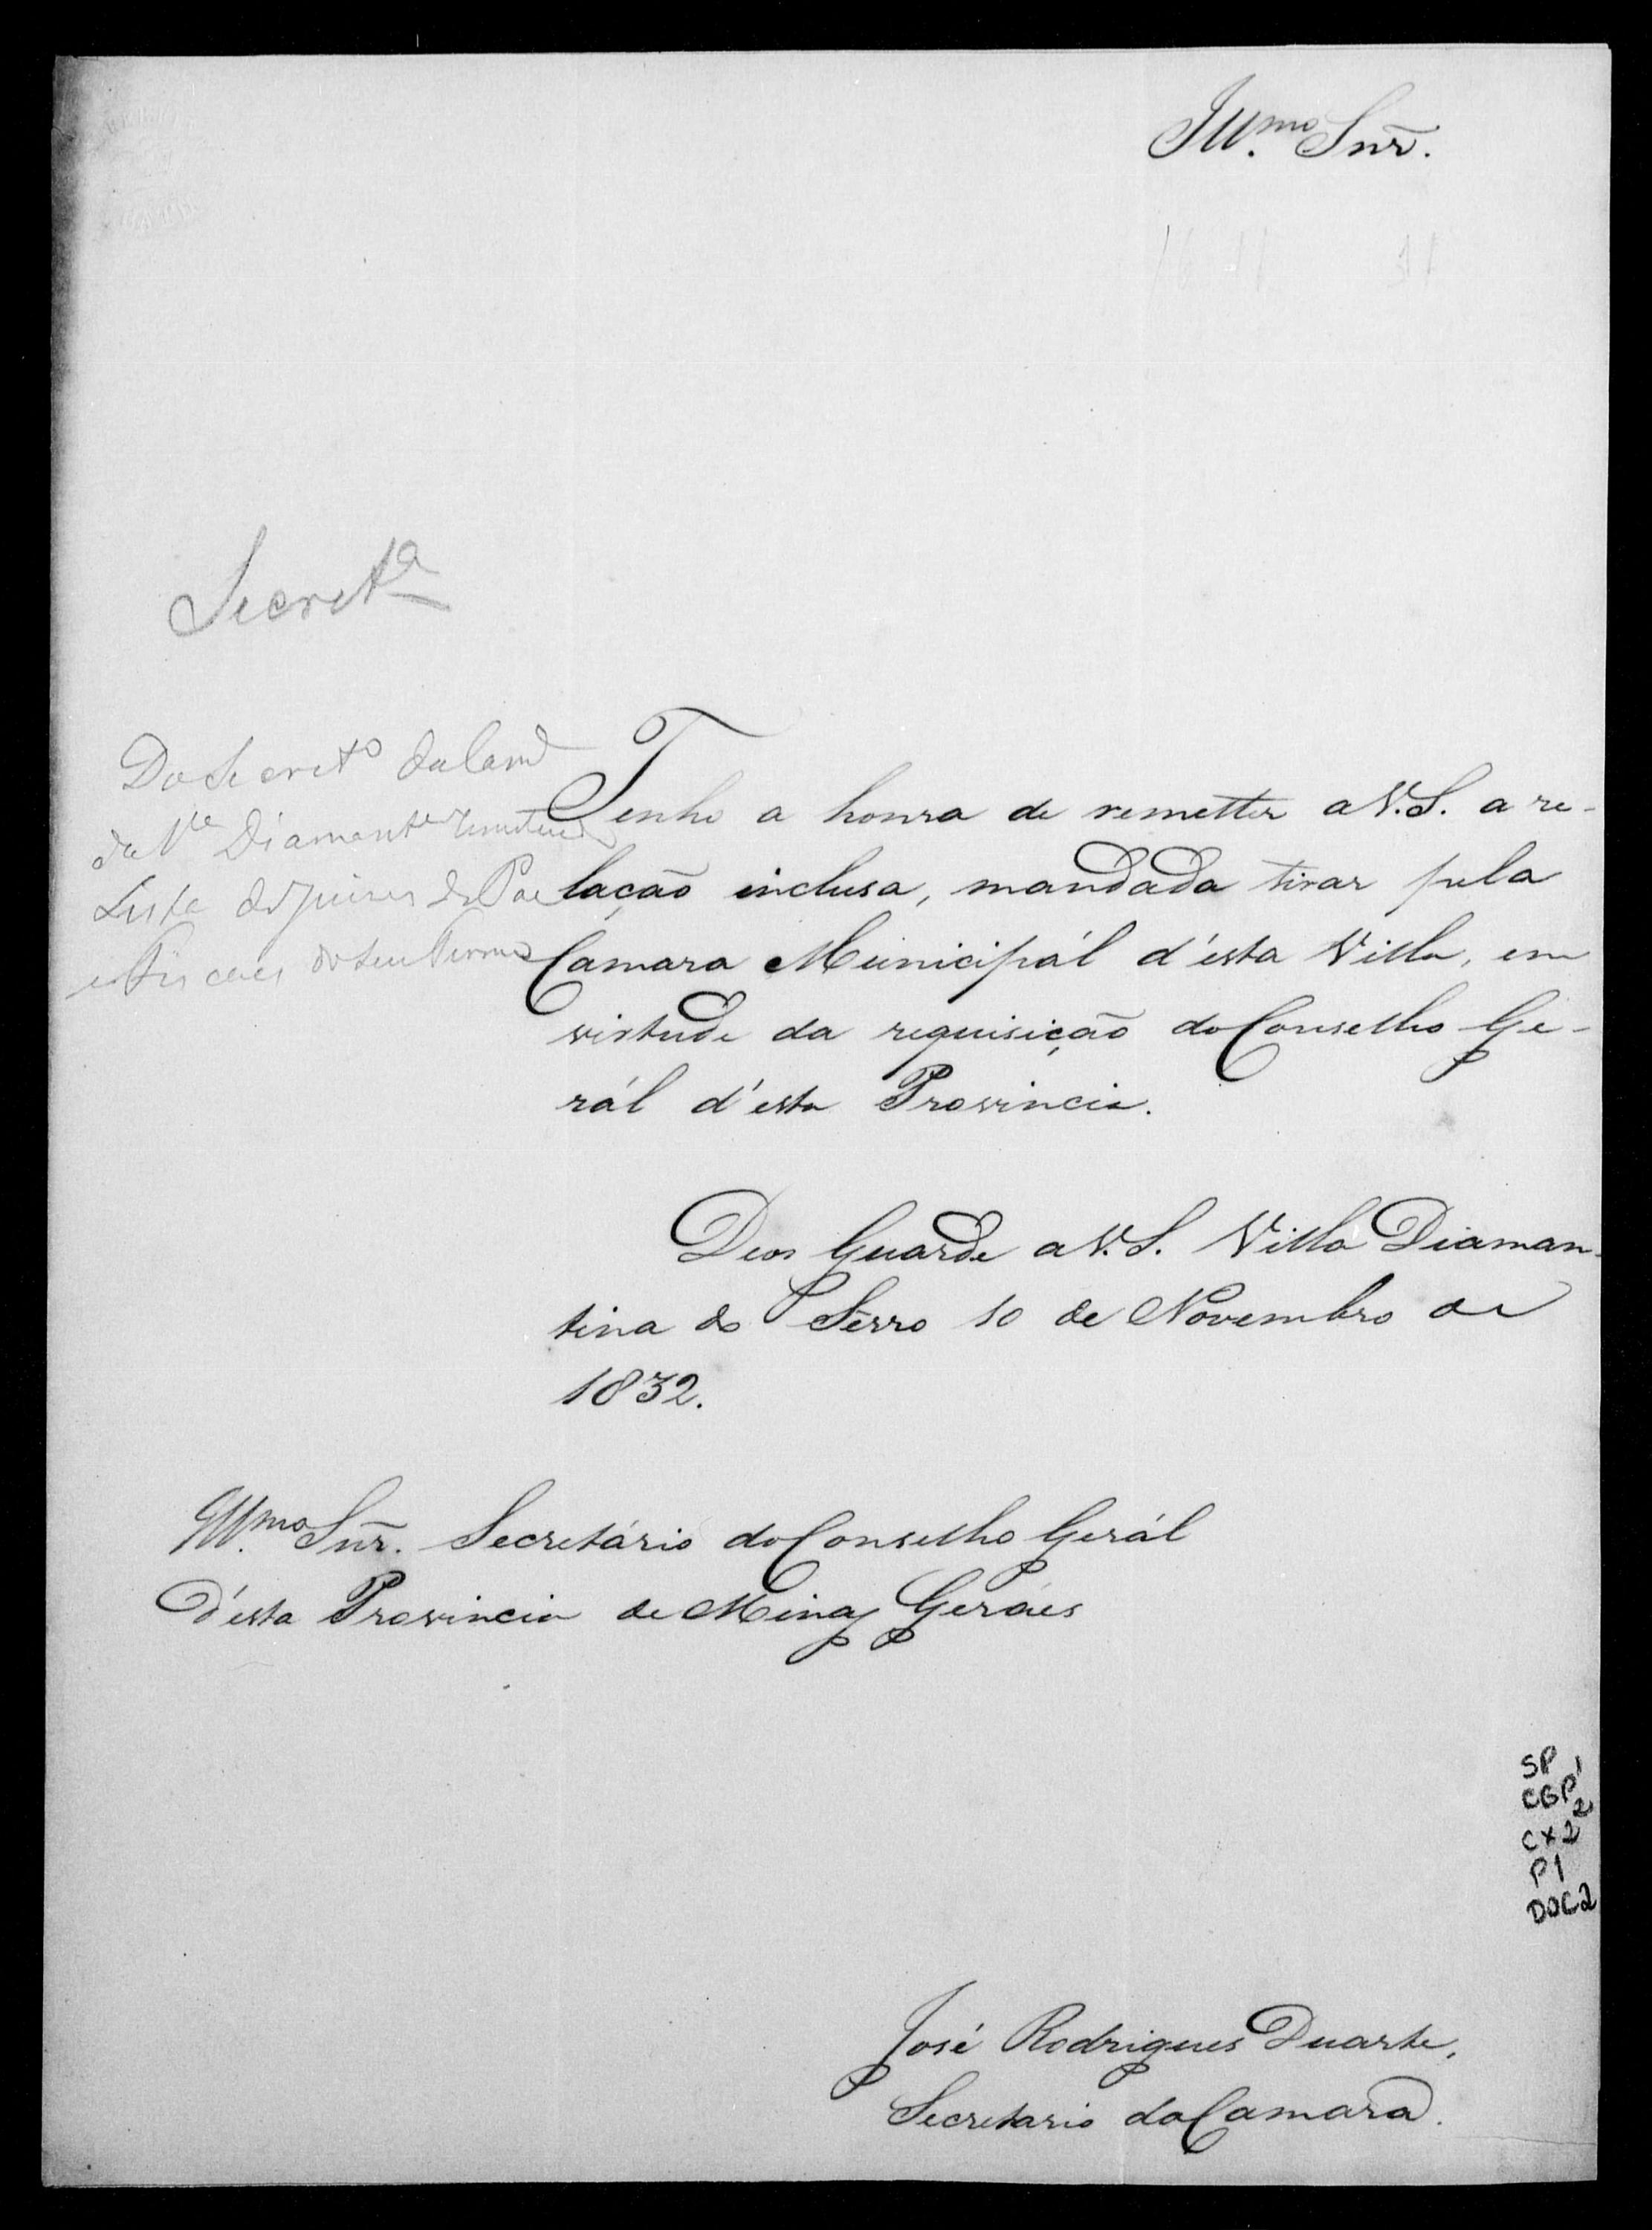 Ill.mo Snr̃.
Secret.a
Do Secret.o da Cam.
da V.a Diamant.a remetendo
Lista dos Juizes de Paz
e Fiscaes do seu Termo
Tenho a honra de remetter a V.S. a re-
lação inclusa, mandada tirar pela
Camara Municipál d'ésta Villa, em
virtude da requisição do Conselho Ge-
rál d'ésta Provincia.
Deos Guarde a V.S. Villa Diaman-
tina do Sêrro 10 de Novembro de
1832.
Ill.mo Snr̃. Secretário do Conselho Gerál
D'ésta Provincia de Minas Geráes
SP
CGP 1/2
CX2
P1
DOC2
José Rodrigues Duarte,
Secretario da Camara.